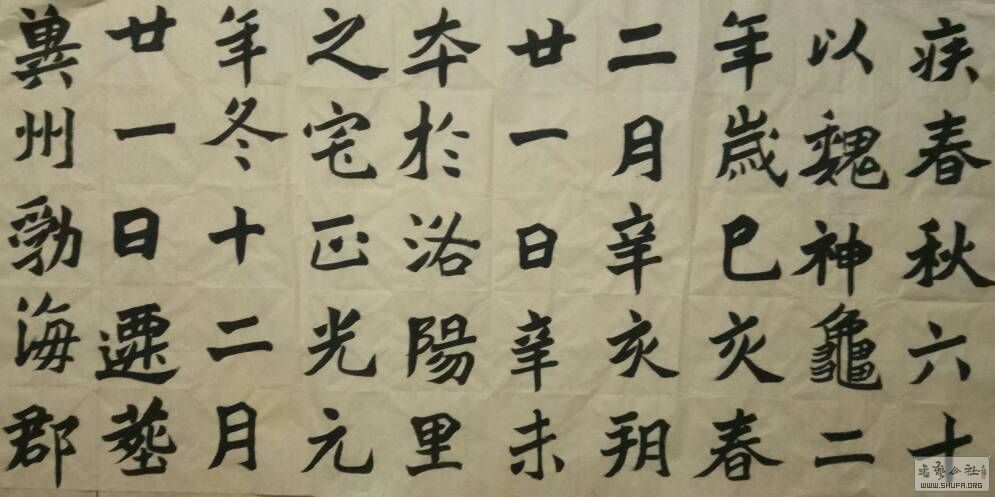 疾春秋六十
以魏神龜二
年歲巳亥春
二月辛亥朔
廿一日辛未
卒於洛陽里
之宅正光元
年冬十二月
廿一日遷葬
冀州勃海郡
书艺公社
WWW.SHUFA.ORG